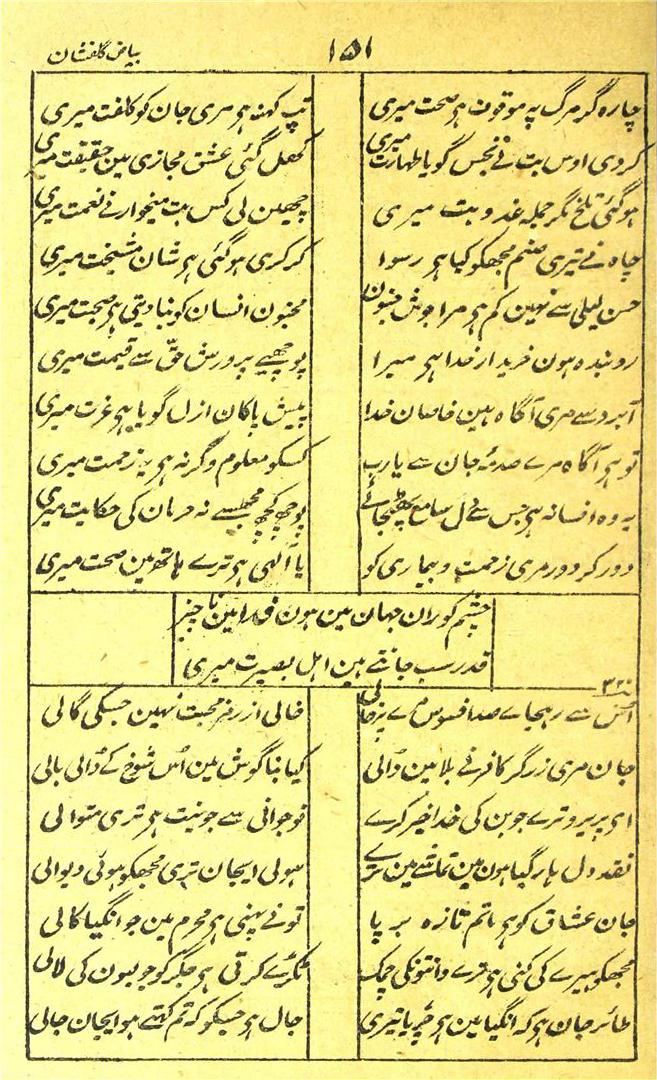 ۱۵۱
بیاض گلفشان
چارہ گر مرگ پہ موقوف ہی صحت میری
تپ کہنہ ہی مری جان کو کلفت میری
کر دی اوس بت نے نجس گویا طہارت میری
کھل گئی عشق مجازی مین حقیقت میری
ہو گئی تلخ مگر جملہ عذوبت میری
چھین لی کس بت میخوار نے نعمت میری
چاہ نے تیری صنم مجھکو کیا ہی رسوا
کرکری ہو گئی ہی شان مشیخت میری
حسن لیلی سے نہین کم ہی مرا جوش جنون
مجنون انسان کو بنا دیتی ہی صحبت میری
بندہ ہون خریدار خدا ہی میرا
پوچھیے پرورش حق سے قیمت میری
آبرو سے مری آگاہ ہین خاصان خدا
پیش پاکان ازل گویا ہی عزت میری
تو ہی آگاہ مرے صدمۂ جان سے یارب
کسکو معلوم وگرنہ ہی یہ زحمت میری
یہ وہ افسانہ ہی جس سے دل سامع
پوچھ کچھ مجھسے نہ حرمان کی حکایت میری
دور کر دور مری زحمت و بیماری کو
یا آلہی ہی ترے ہاتھ مین صحت میری
چشم کوران جہان مین ہون فدا مین ناچیز
قدر سب جانتے ہین اہل بصیرت میری
۳۲۰
اس سے رہجاے صدا فسوس
خالی از رمز محبت نہین جسکی گالی
جان مری زرگر کافر نے بلا مین ڈالی
کیا بناگوش مین اس شوخ کے ڈالی بالی
ای پریرو ترے جوبن کی خدا خیر کرے
نوجوانی سے جو نیت ہی تری متوالی
نقد دل ہار گیا ہون مین تماشے مین ترے
ہولی ایجان تری مجھکو ہوئی دیوالی
جان عشاق کو ہی ماتم تازہ برپا
تونے پہنی ہی محرم مین جو انگیا کالی
مجھکو ہیرے کی کنی ہی ترے دانتونکی چمک
ٹکڑے کرتی ہی جگر کو جو لبون کی لالی
طائر جان ہی کہ انگیا مین ہی چڑیا تیری
جال ہی جسکو کہ تم کہتے ہو ایجان جالی